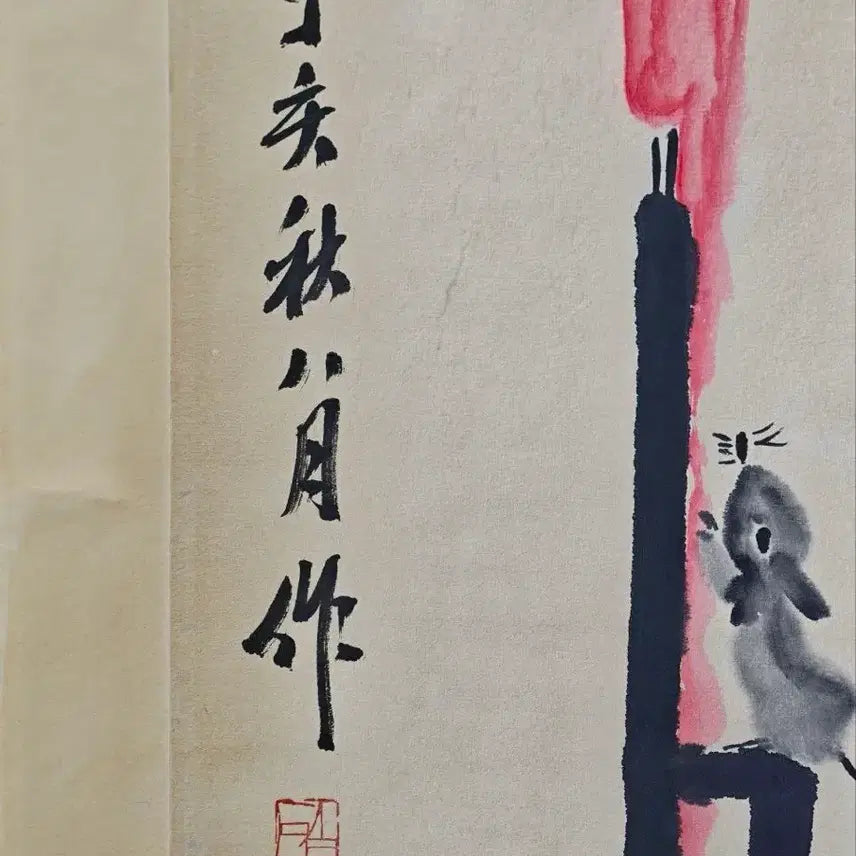 亥秋八月作